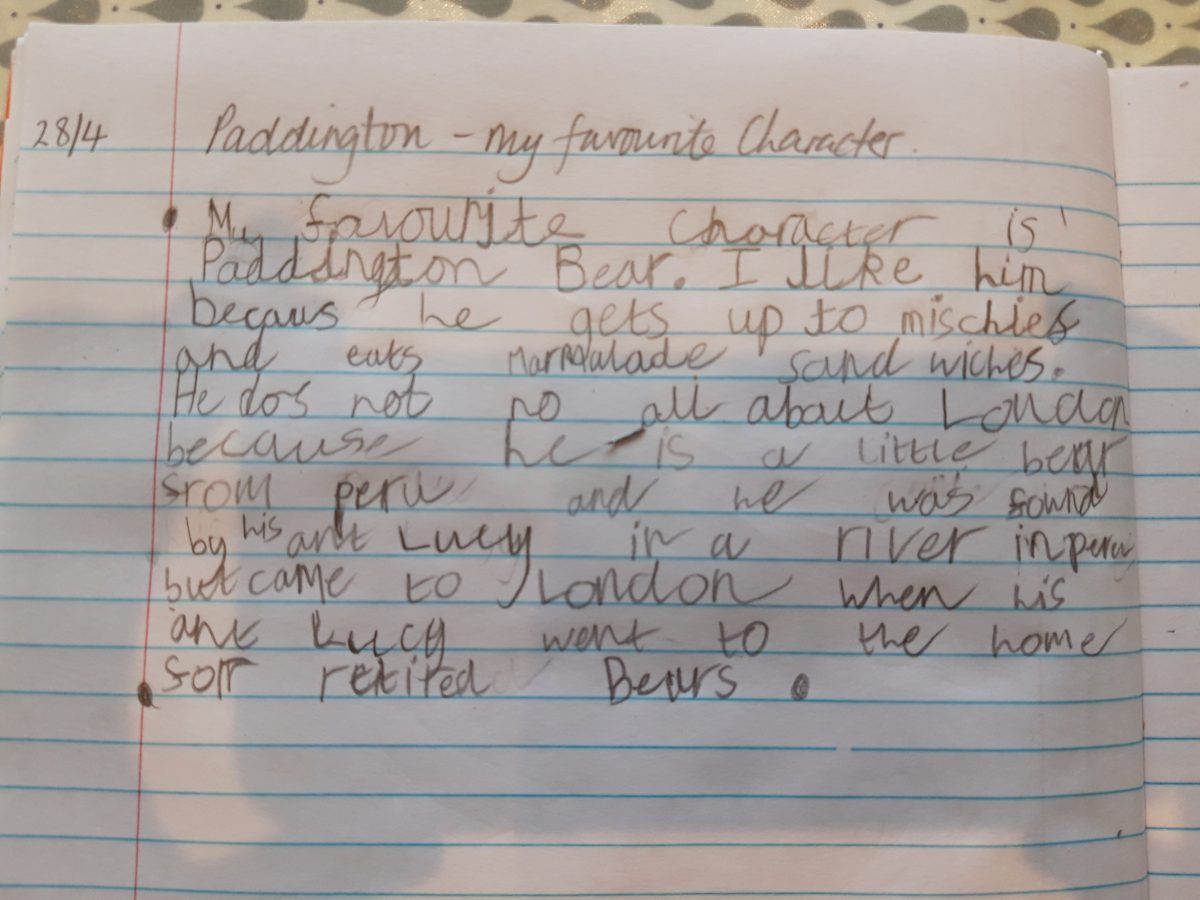 28/4 Paddington - my favourite Character.
My favourite character is
Paddington Bear. I like him
becaus he gets up to mischief
and eats marmalade sandwiches.
He dos not no all about London
because he is a little bear
from peru and he was found
by his ant Lucy in a river in peru
but came to London when his
ant Lucy went to the home
for retited Bears.